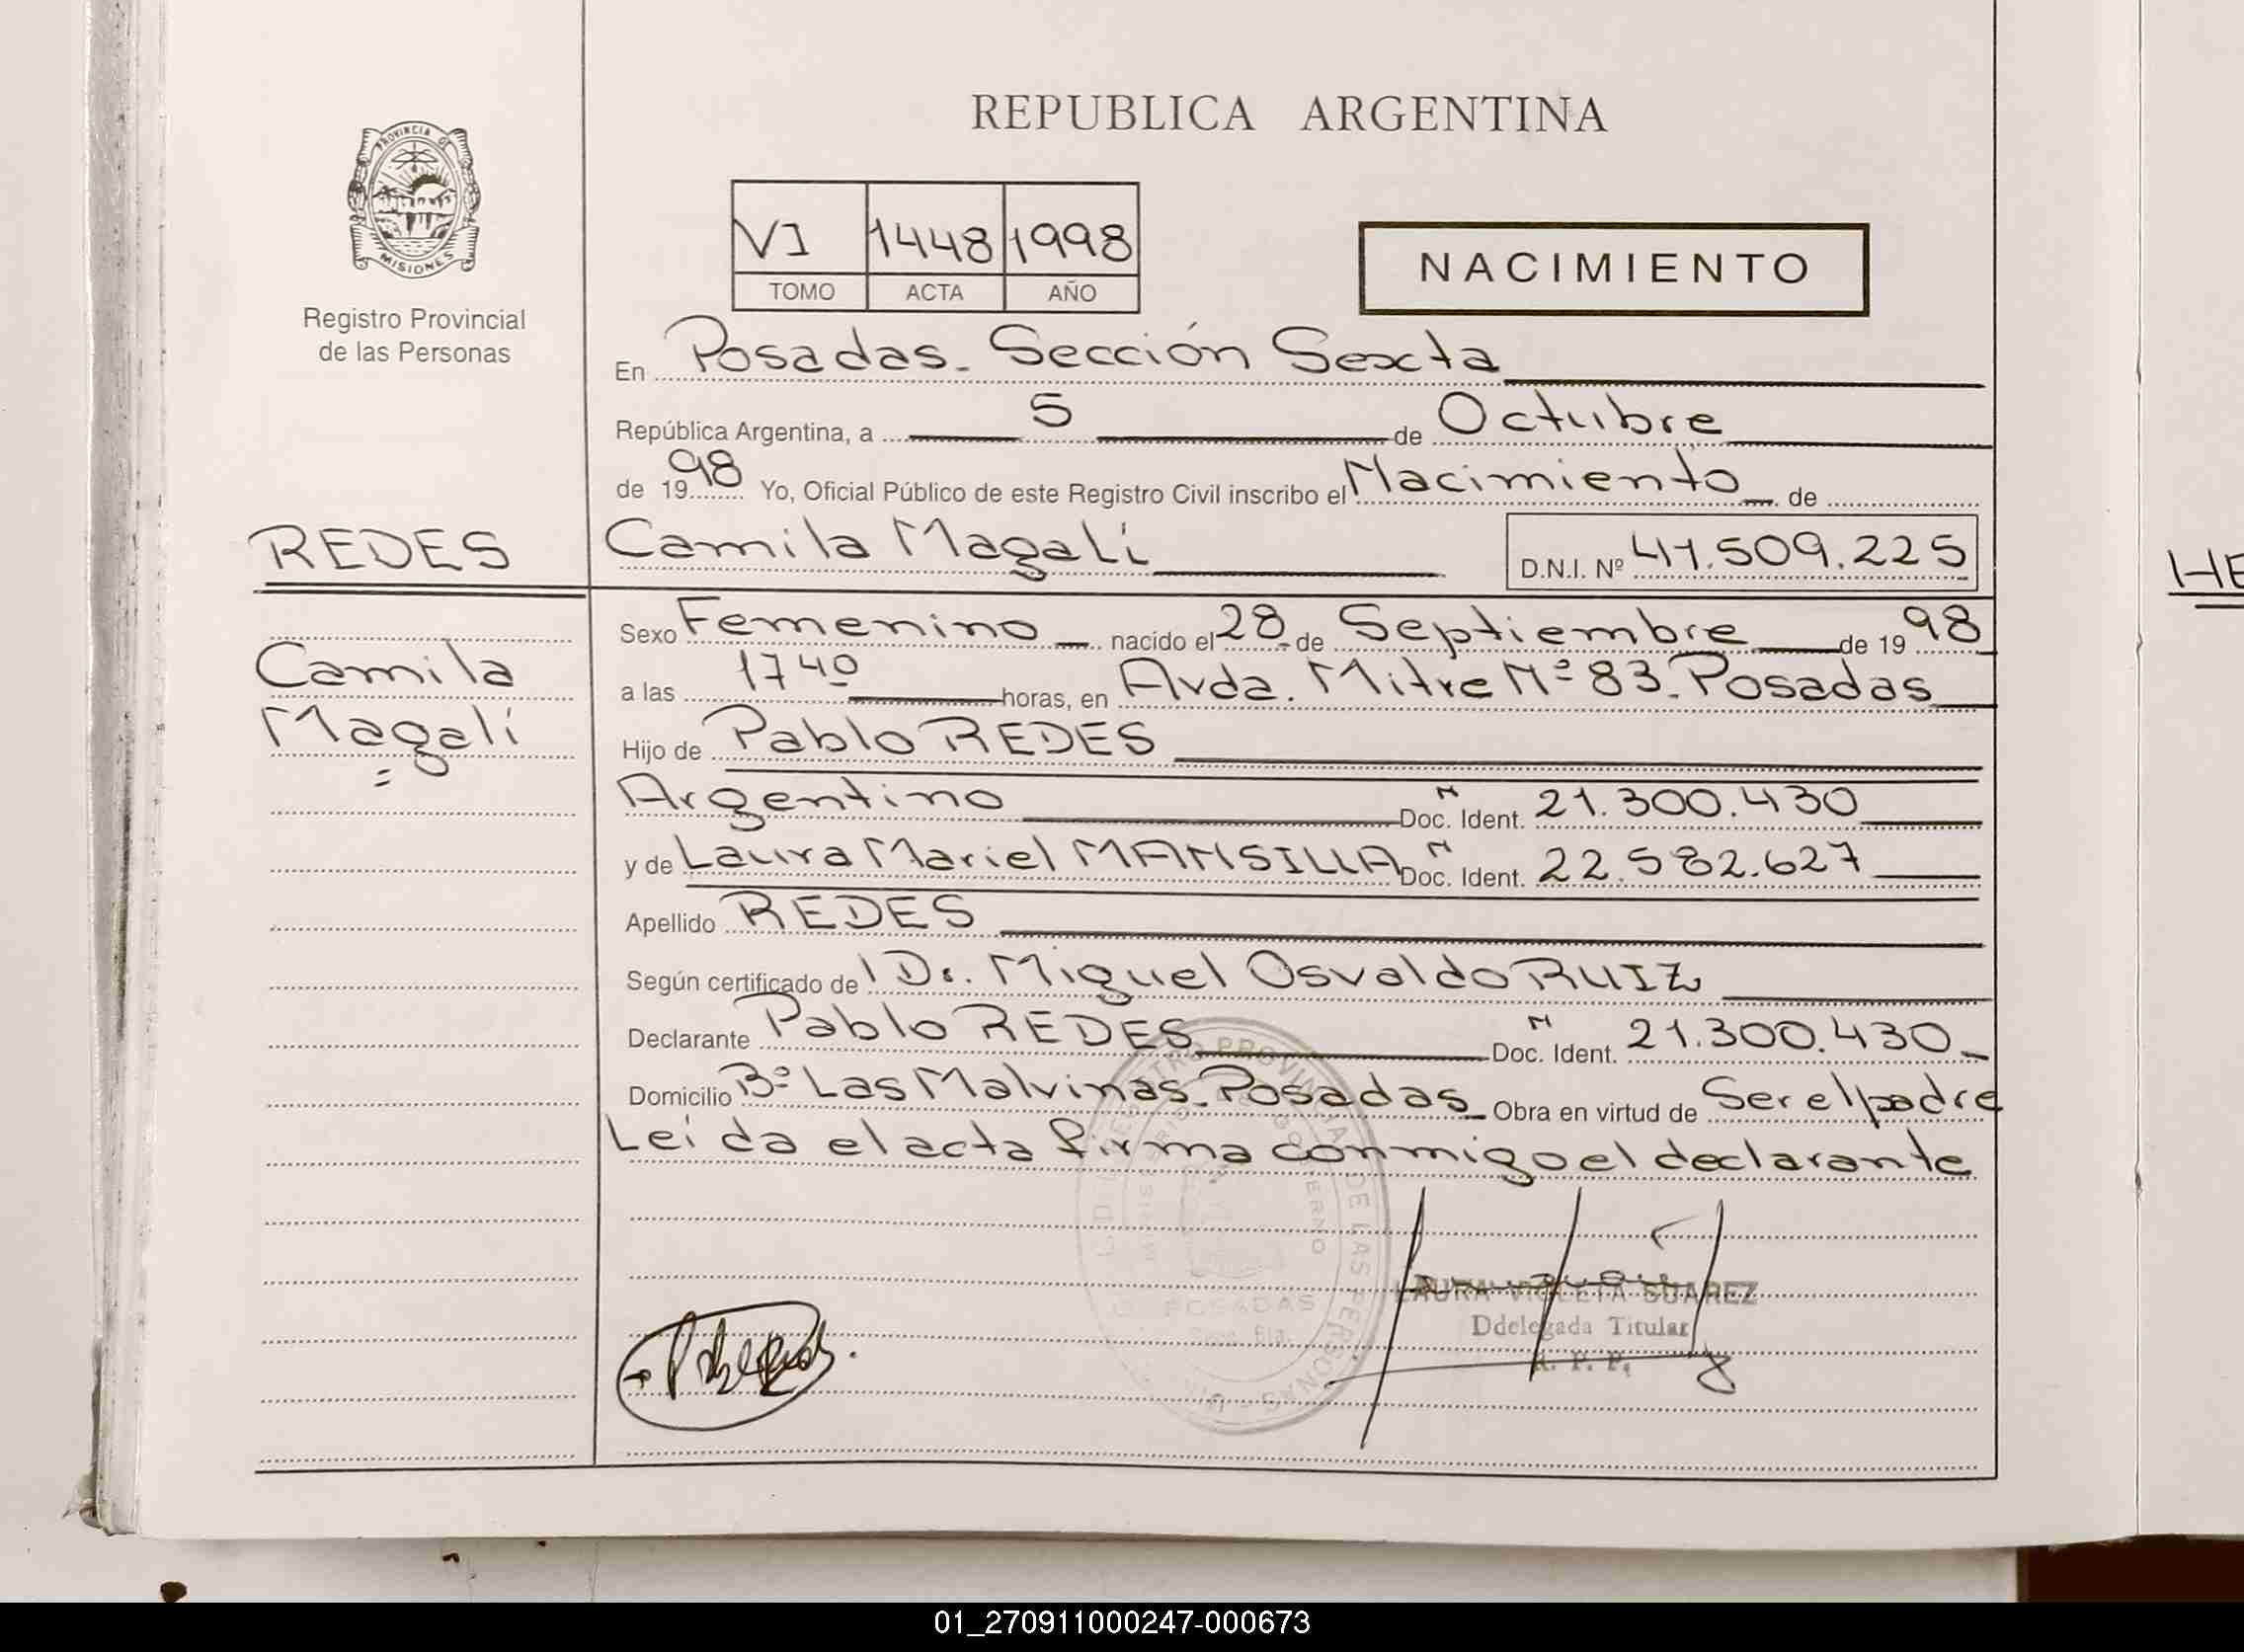 REPUBLICA ARGENTINA
PROVINCIA DE
MISIONES
Registro Provincial
de las Personas
VI 1448 1998
TOMO ACTA AÑO
NACIMIENTO
En Posadas. Sección Sexta
República Argentina, a 5 de Octubre
de 1998 Yo, Oficial Público de este Registro Civil inscribo el Nacimiento de
REDES Camila Magalí D.N.I. Nº 41.509.225
Sexo Femenino nacido el 28 de Septiembre de 1998
Camila
a las 17 40 horas, en Avda. Mitre Nº 83. Posadas
Magalí
Hijo de Pablo REDES
Argentino Doc. N Ident. 21.300.430
y de Laura Mariel MANSILLA Doc. N Ident. 22.582.627
Apellido REDES
Según certificado del Dr. Miguel Osvaldo RUIZ
Declarante Pablo REDES Doc. N Ident. 21.300.430
Domicilio Bº Las Malvinas. Posadas Obra en virtud de Ser el padre
Leída el acta firma conmigo el declarante
LAURA VIOLETA SUAREZ
Ddelegada Titular
R. P. P.
POSADAS
HE
01_270911000247-000673